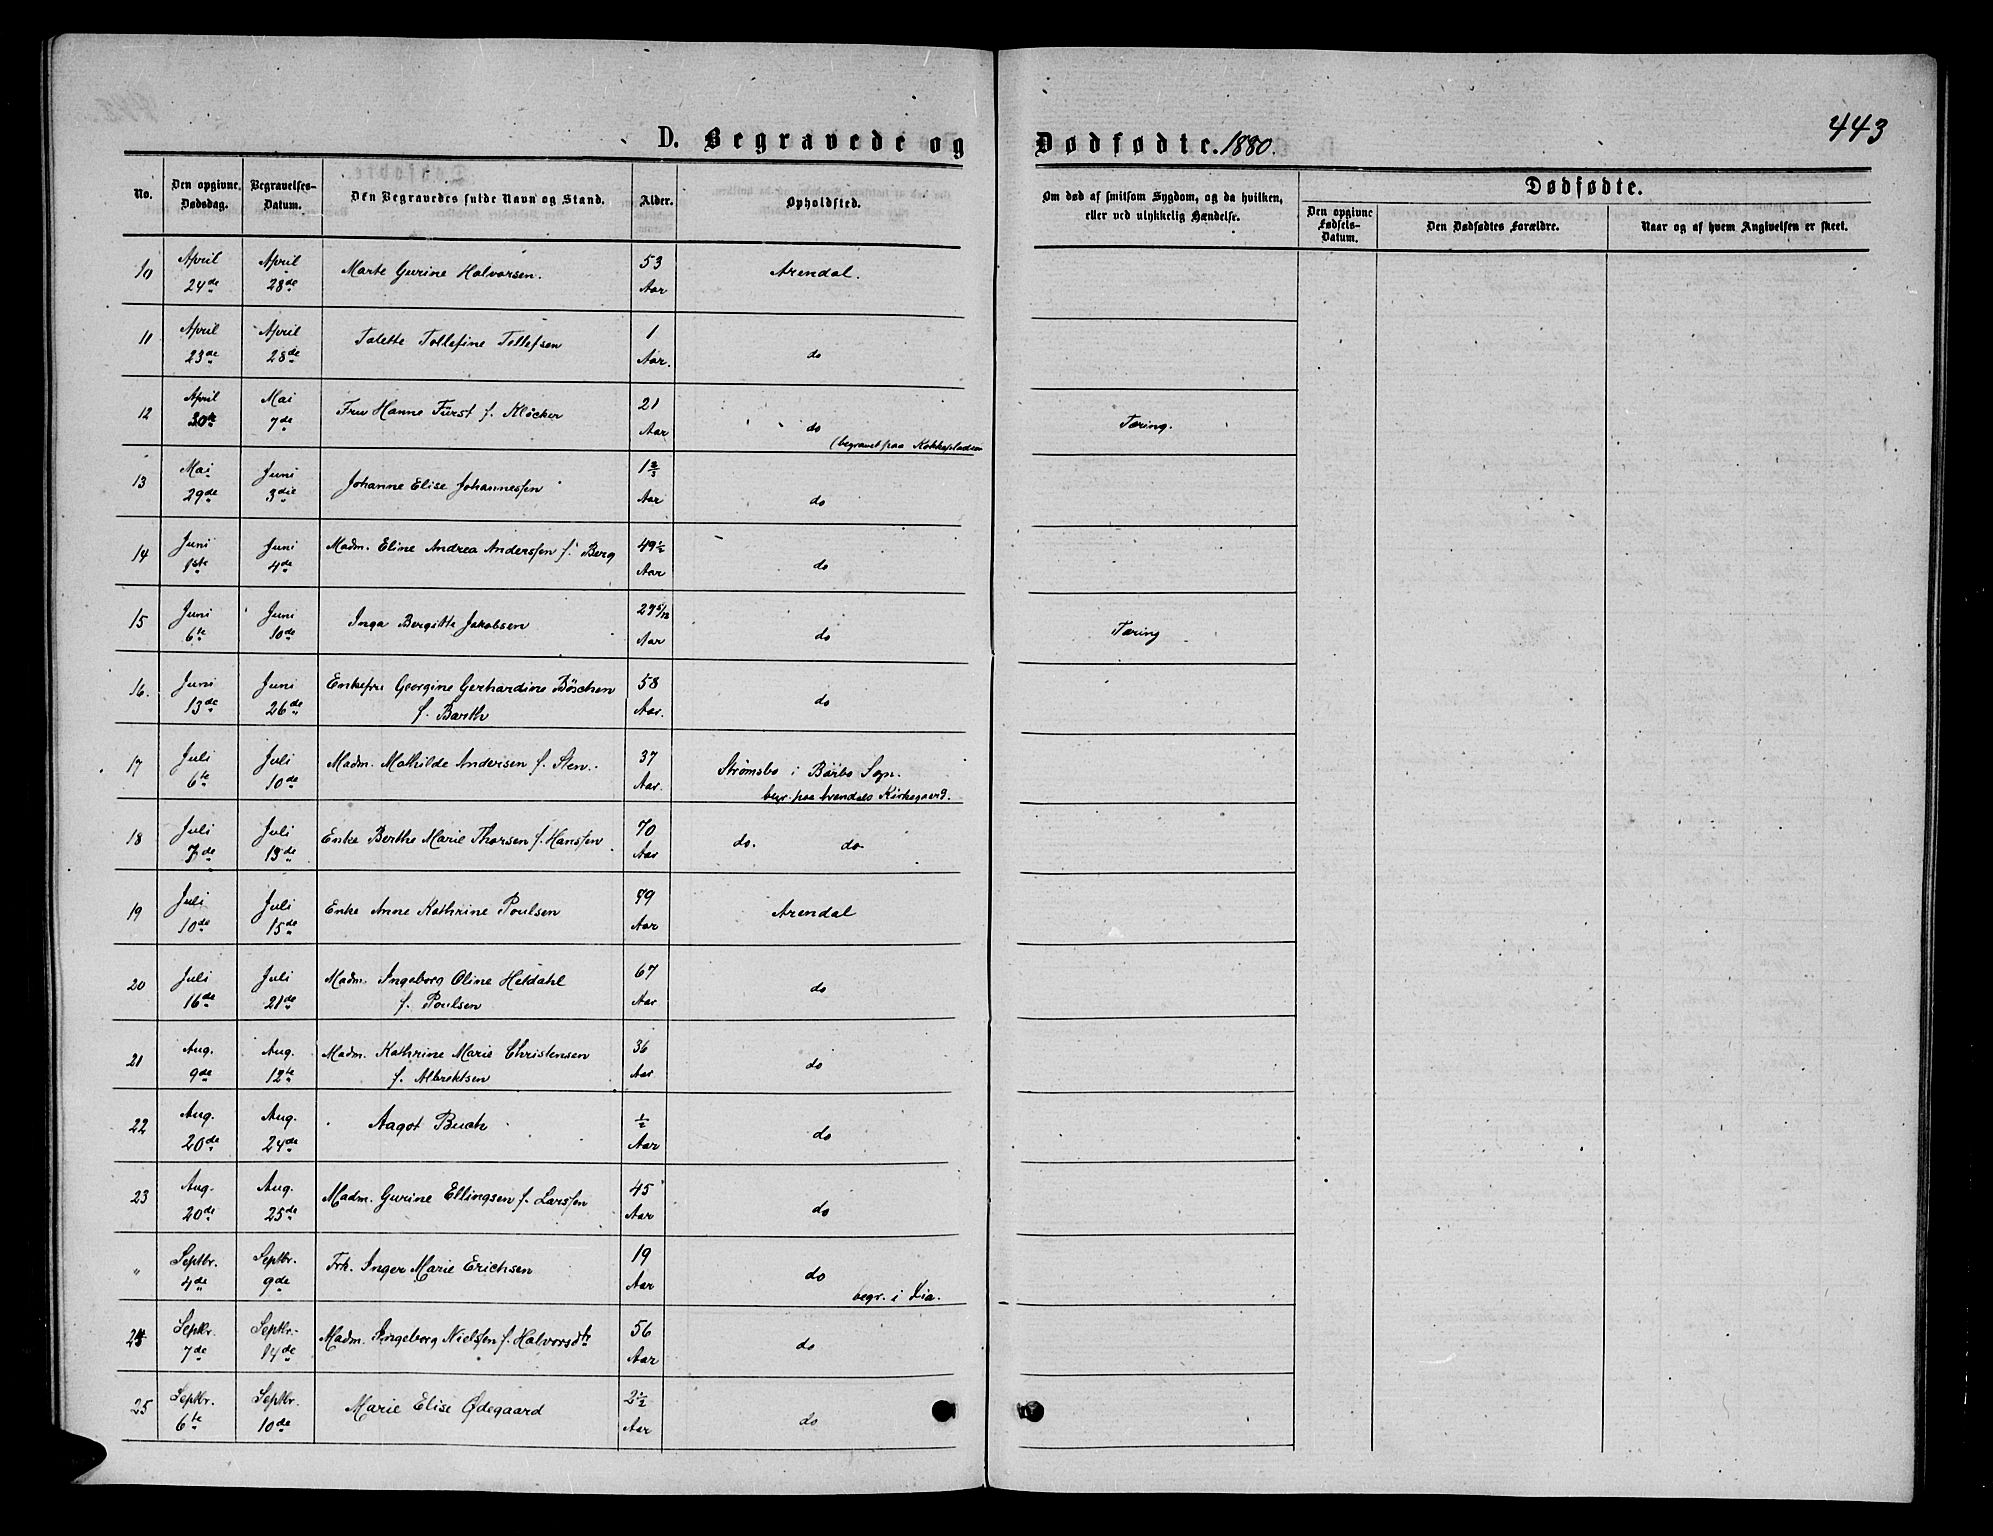 443
D. Begravede og Dødfødte. 1880.
No. | Den opgivne Dødsdag. | Begravelses-Datum. | Den Begravedes fulde Navn og Stand. | Alder. | Opholdsted. | Om død af smitsom Sygdom, og da hvilken, eller ved ulykkelig Hændelse. | Dødfødte. | Den opgivne Fødsels-Datum. | Den Dødfødtes Forældre. | Naar og af hvem Angivelsen er skeet.
10 | April 24de | April 28de | Marte Gurine Halvorsen. | 53 Aar | Arendal.
11 | April 23de | April 28de | Talette Tollefine Tollefsen | 1 Aar. | do
12 | April 30te | Mai 7de | Fru Hanne Fürst f. Kløcker | 21 Aar | do (begravet paa Kokkepladsen | Tæring.
13 | Mai 29de | Juni 3die | Johanne Elise Johannessen | 1 2/3 Aar | do
14 | Juni 1ste | Juni 4de | Madm. Eline Andrea Anderssen f. Berg | 49 1/2 Aar | do
15 | Juni 6te | Juni 10de | Inga Bergitte Jakobsen | 29 5/12 Aar | do | Tæring
16. | Juni 13de | Juni 26de | Enkefru Georgine Gerhardine Böschen f. Barth | 58 Aar. | do
17 | Juli 6te | Juli 10de | Madm. Mathilde Andersen f. Sten. | 37 Aar. | Strømsbo i Barbo Sogn. begr. paa Arendals Kirkegaard.
18 | Juli 7de | Juli 13de | Enke Berthe Marie Thorsen f. Hanssen | 70 Aar | do. do
19 | Juli 10de | Juli 15de | Enke Anne Kathrine Poulsen | 79 Aar | Arendal
20 | Juli 16de | Juli 21de | Madm. Ingeborg Oline Heldahl f. Poulsen | 67 Aar | do
21 | Aug. 9de | Aug. 12te | Madm. Kathrine Marie Christensen f. Albrektsen | 36 Aar | do
22 | Aug. 20de | Aug. 24de | Aagot Buch | 1/2 Aar | do
23 | Aug. 20de | Aug. 25de | Madm. Gurine Ellingsen f. Larssen | 45 Aar | do
" | Septbr. 4de | Septbr. 9de | Frk. Inger Marie Erichsen | 19 Aar | do begr. i Lia.
24 | Septbr. 7de | Septbr. 14de | Madm. Ingeborg Nielssen f. Halvorsdtr | 56 Aar | do
25 | Septbr. 6te | Septbr. 10de | Marie Elise Ødegaard | 2 1/2 Aar | do